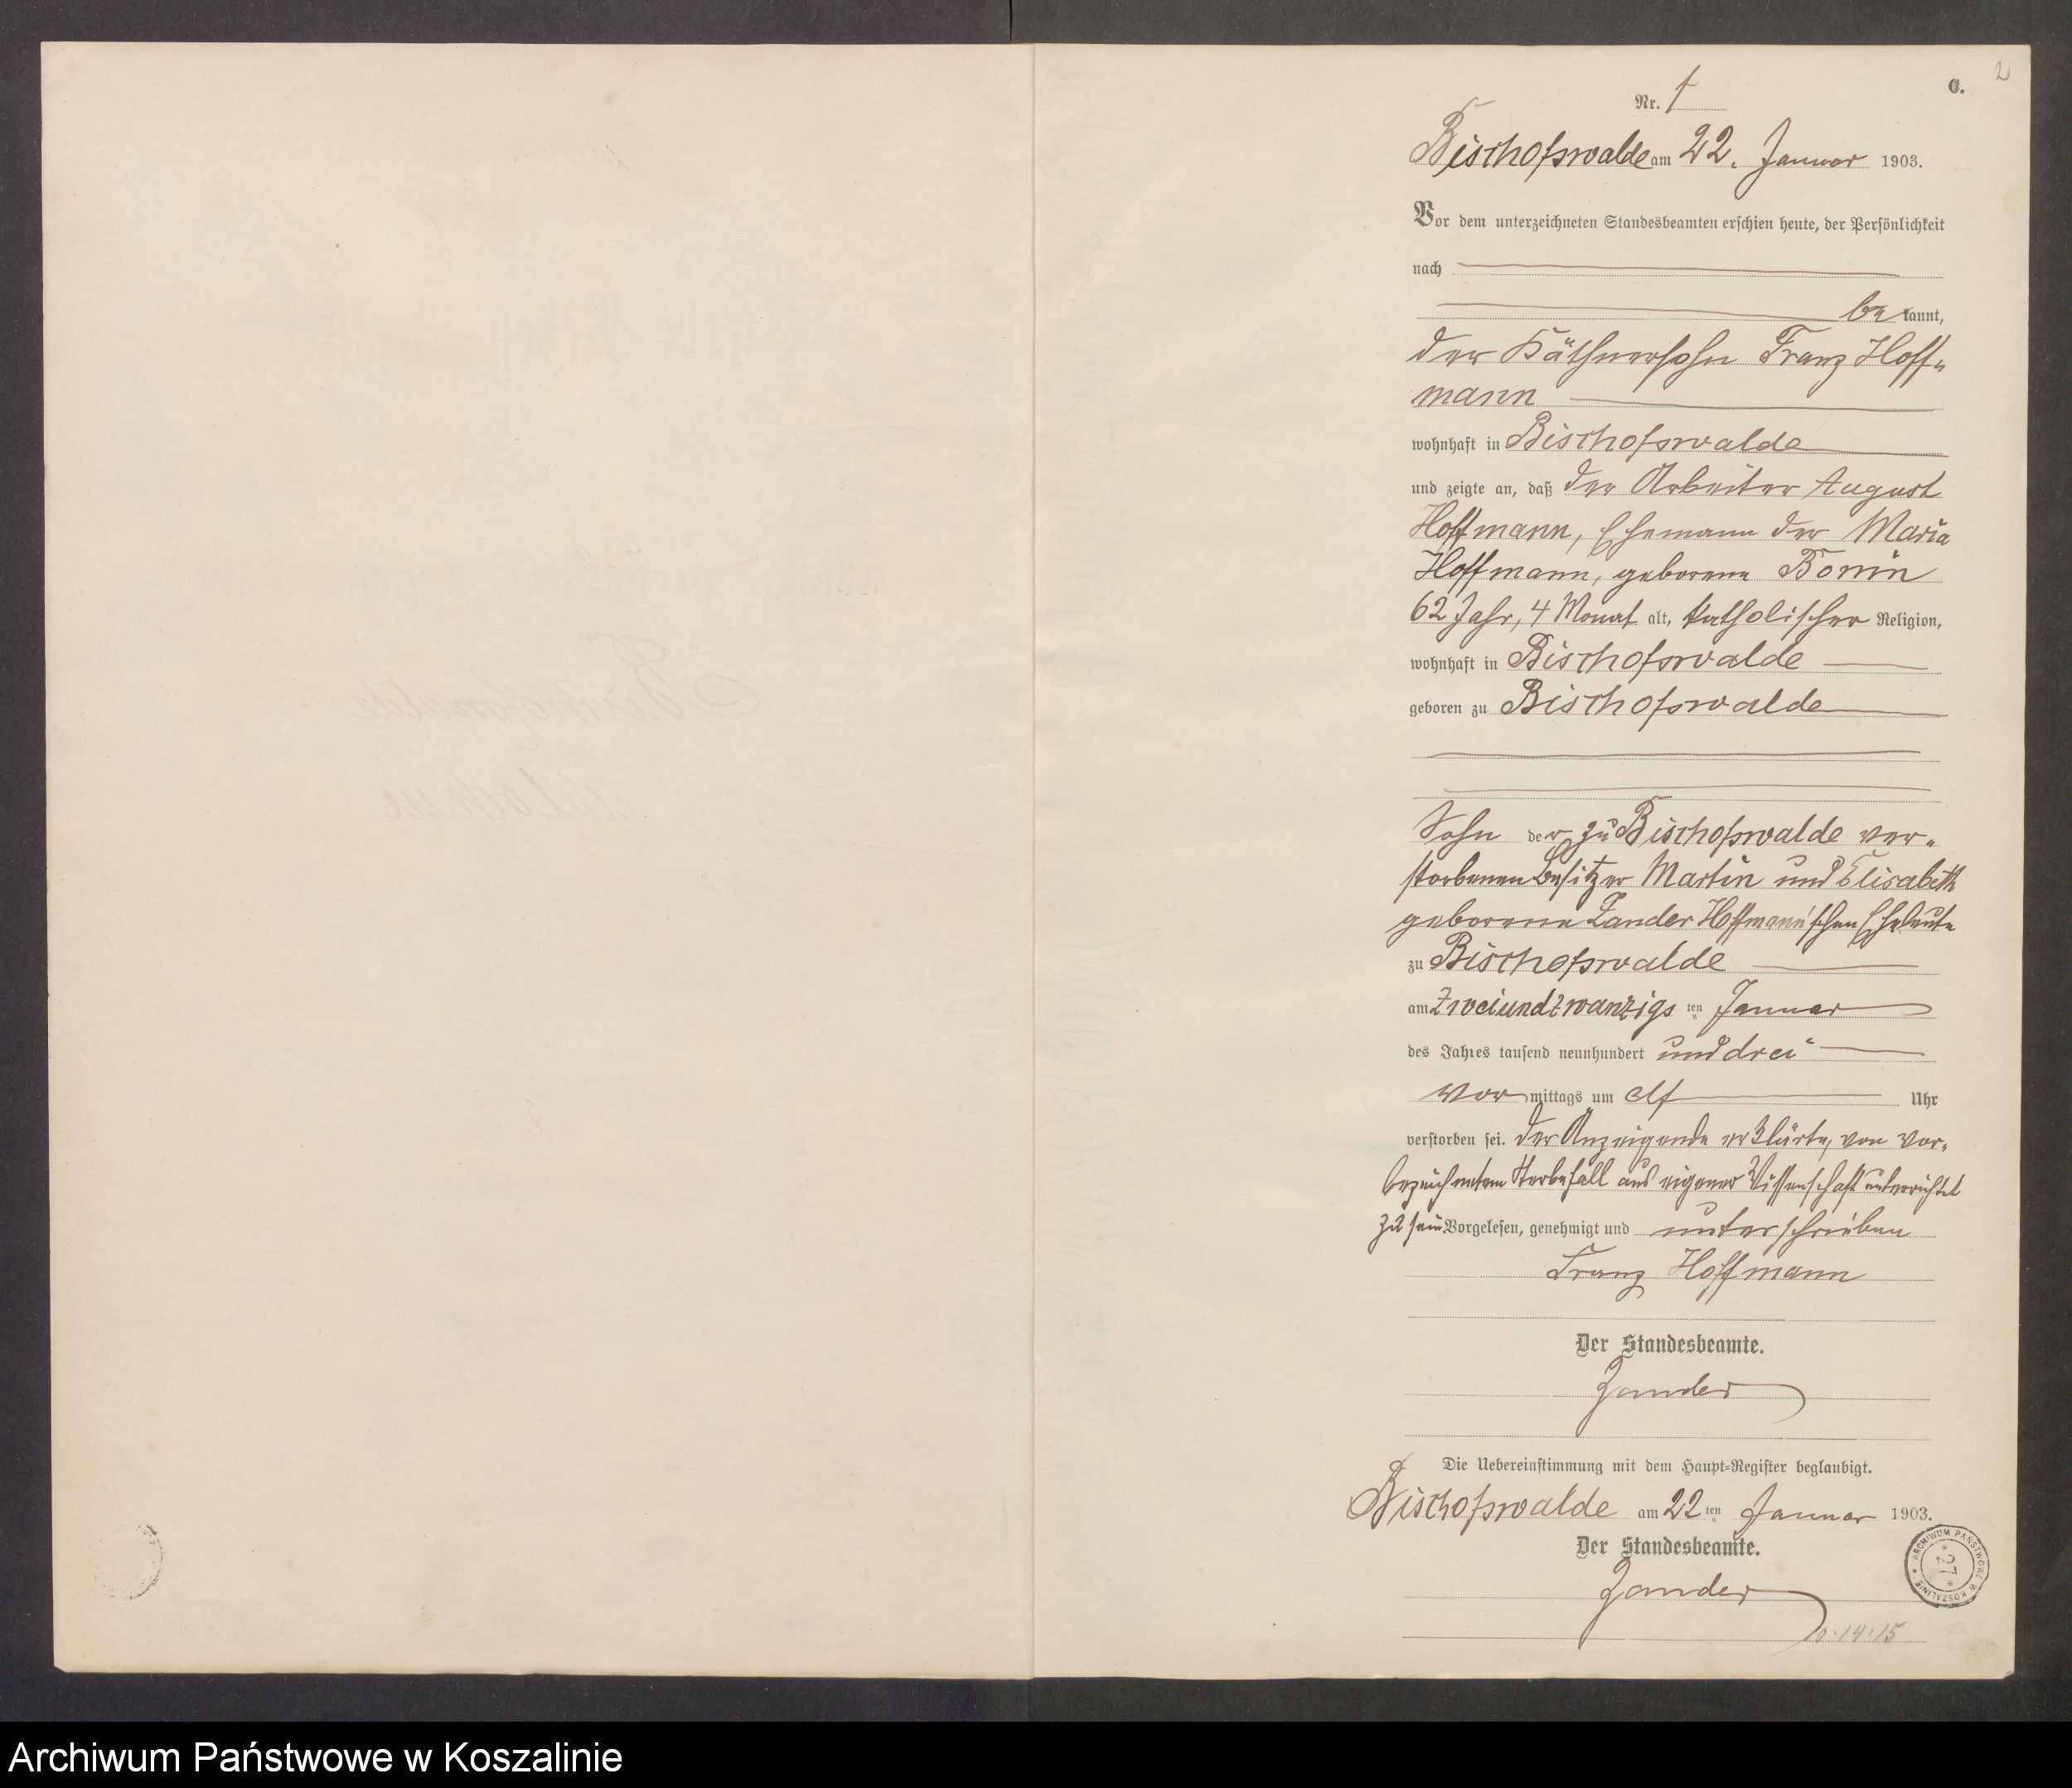 2
C.
Nr. 1
Bischofswalde am 22. Januar 1903.
Vor dem unterzeichneten Standesbeamten erschien heute, der Persönlichkeit
nach
be kannt,
der Käthnersohn Franz Hoff-
mann
wohnhaft in Bischofswalde
und zeigte an, daß der Arbeiter August
Hoffmann, Ehemann der Maria
Hoffmann, geborene Bonin
62 Jahr, 4 Monat alt, katholischer Religion,
wohnhaft in Bischofswalde
geboren zu Bischofswalde
Sohn der zu Bischofswalde ver-
storbenen Besitzer Martin und Elisabeth
geborene Zander Hoffmann'schen Eheleute
zu Bischofswalde
am Zweiundzwanzigs ten Januar
des Jahres tausend neunhundert und drei
Vor mittags um elf Uhr
verstorben sei. Der Anzeigende erklärte, von vor-
bezeichnetem Sterbefall aus eigener Wissenschaft unterrichtet
zu sein Vorgelesen, genehmigt und unterschrieben
Franz Hoffmann
Der Standesbeamte.
Zander
Die Uebereinstimmung mit dem Haupt-Register beglaubigt.
Bischofswalde am 22 ten Januar 1903.
Der Standesbeamte.
Zander
ARCHIWUM PAŃSTWOWE W KOSZALINIE
* 27 *
14.15
Archiwum Państwowe w Koszalinie